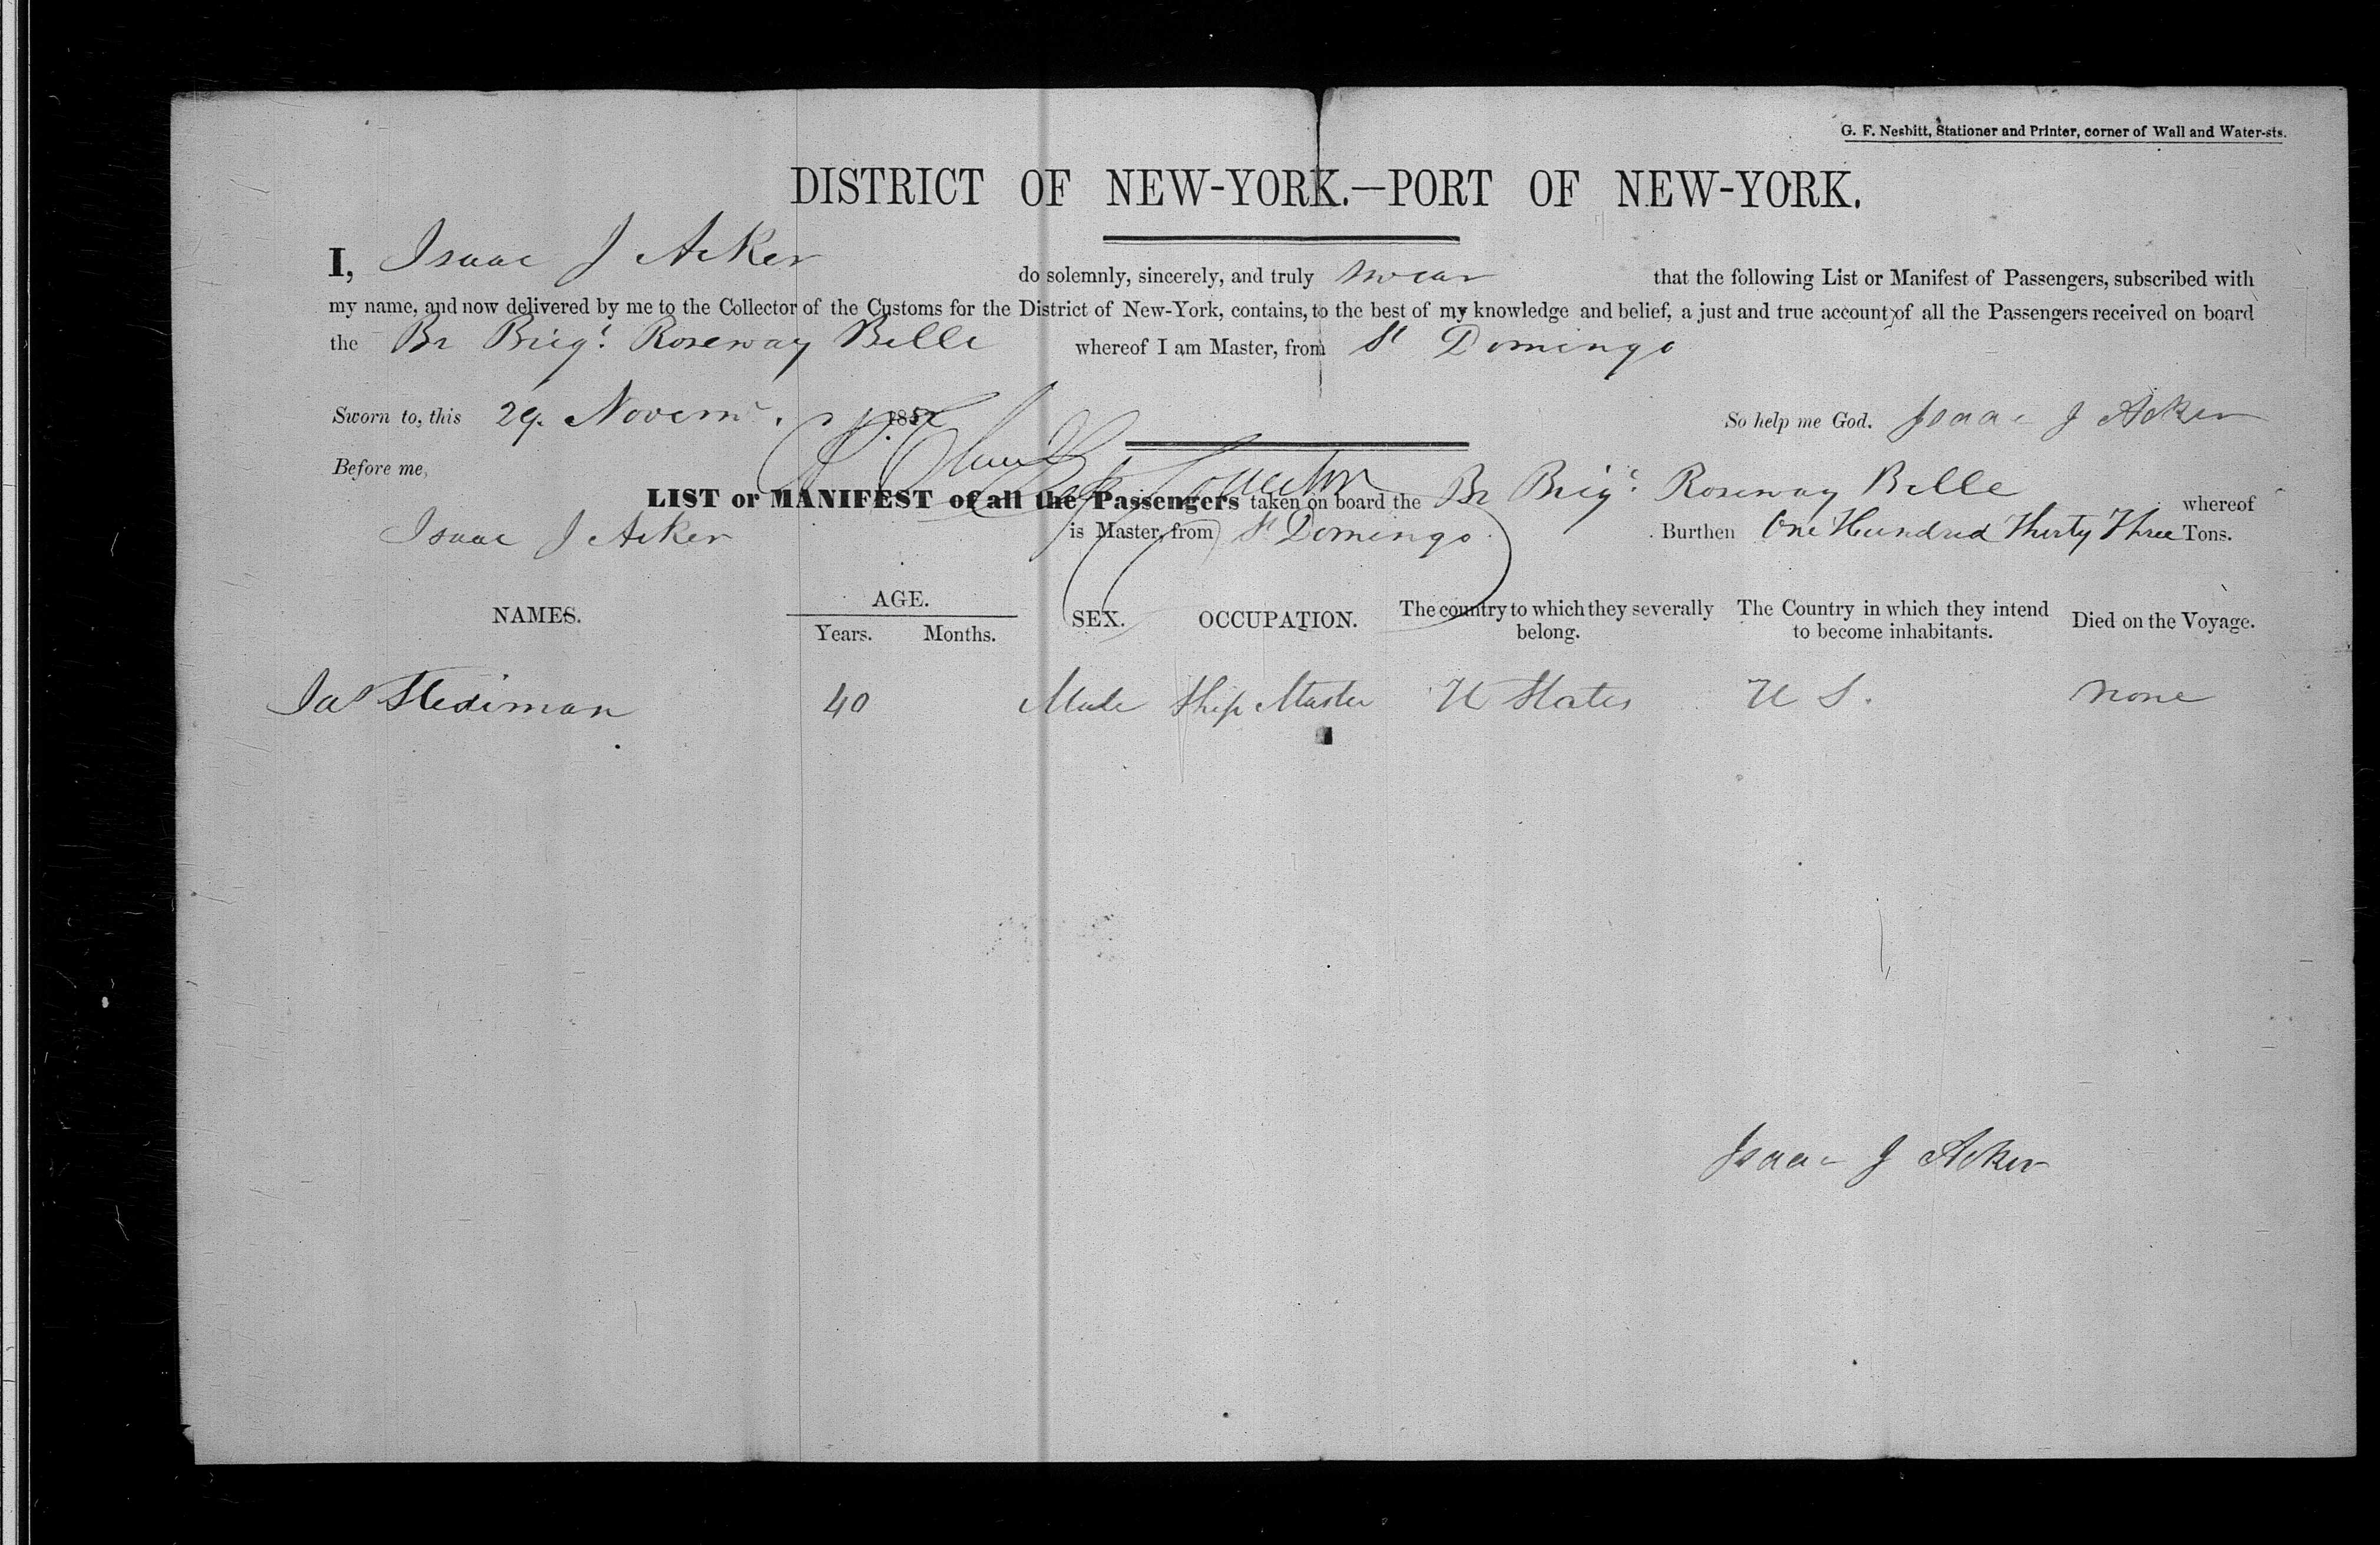 G. F. Nesbitt, Stationer and Printer, corner of Wall and Water-sts.
DISTRICT OF NEW-YORK.—PORT OF NEW-YORK.
I, Isaac J Acker do solemnly, sincerely, and truly swear that the following List or Manifest of Passengers, subscribed with
my name, and now delivered by me to the Collector of the Customs for the District of New-York, contains, to the best of my knowledge and belief, a just and true account of all the Passengers received on board
the Br Brigt Roseway Belle whereof I am Master, from St Domingo
Sworn to, this 29. Novemr. So help me God. Isaac J Acker
Before me,
Collector
LIST or MANIFEST of all the Passengers taken on board the Br Brigt Roseway Belle whereof
Isaac J Acker is Master, from St Domingo. Burthen One Hundred Thirty Three Tons.
NAMES. AGE. Years. Months. SEX. OCCUPATION. The country to which they severally belong. The Country in which they intend to become inhabitants. Died on the Voyage.
Jas Stediman 40 Male Ship Master U States U S. none
Isaac J Acker